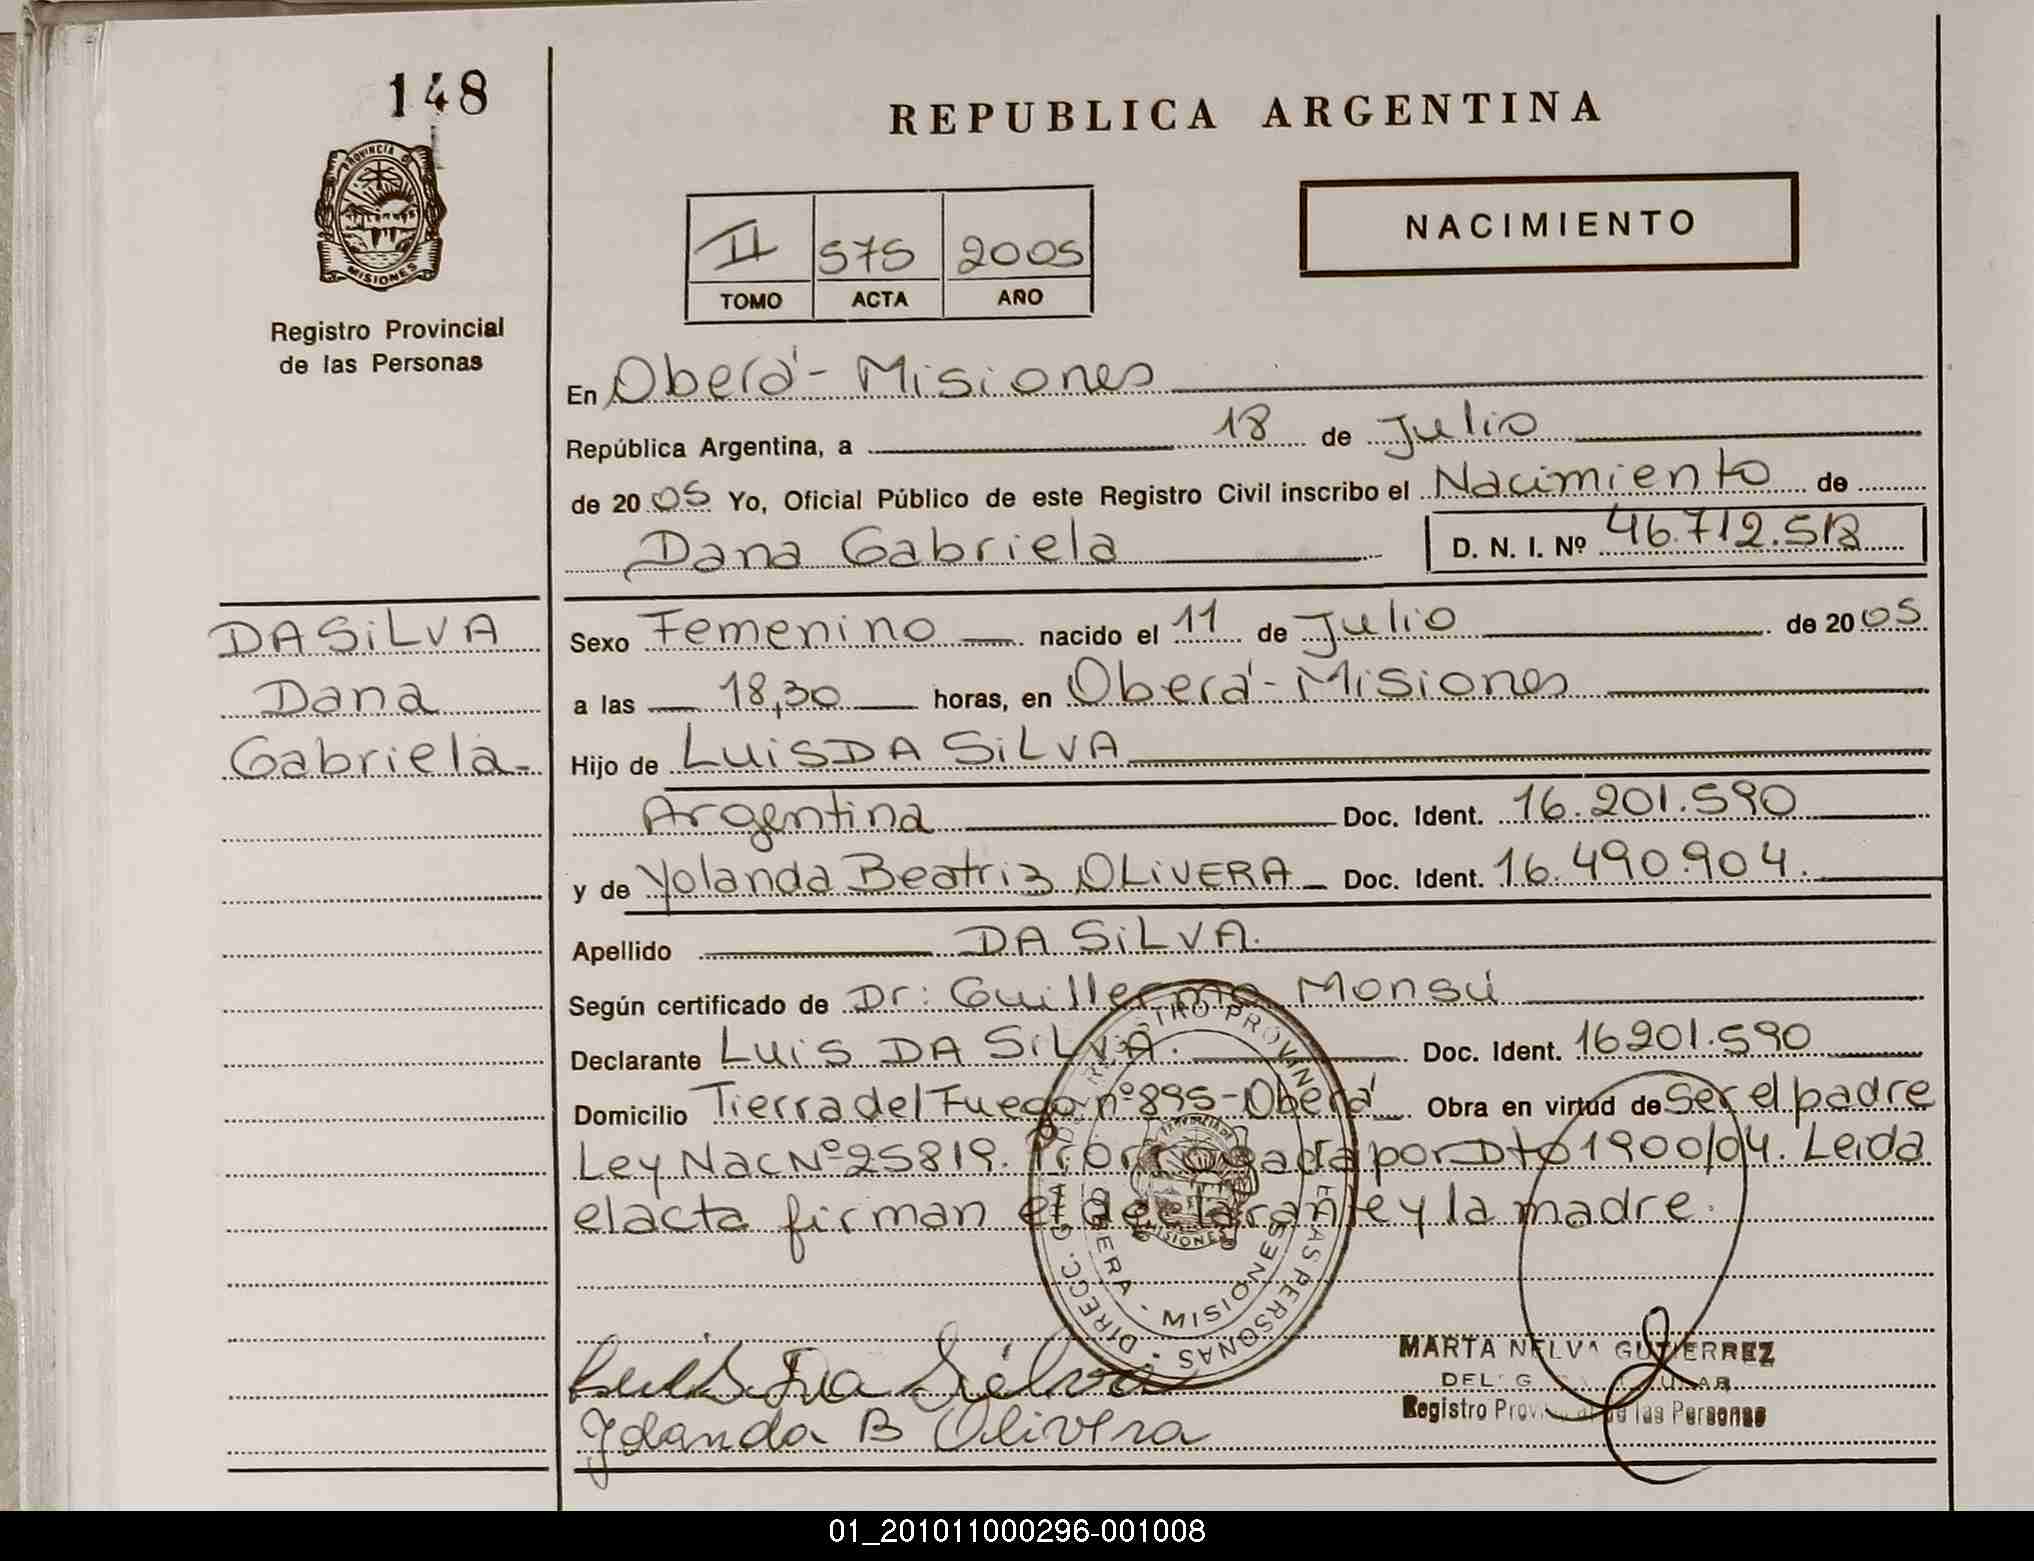 148
PROVINCIA DE
MISIONES
Registro Provincial
de las Personas
REPUBLICA ARGENTINA
II 575 2005
TOMO ACTA AÑO
NACIMIENTO
En Oberá - Misiones
República Argentina, a 18 de Julio
de 2005 Yo, Oficial Público de este Registro Civil inscribo el Nacimiento de
Dana Gabriela D. N. I. Nº 46.712.512
DA SiLVA
Dana
Gabriela-
Sexo Femenino nacido el 11 de Julio de 2005
a las 18,30 horas, en Oberá - Misiones
Hijo de LUiS DA SiLVA
Argentina Doc. Ident. 16.201.590
y de Yolanda Beatriz OLiVERA Doc. Ident. 16.490.904.
Apellido DA SiLVA.
Según certificado de Dr: Guillermo Monsú
Declarante LUiS DA SiLVA. Doc. Ident. 16201.590
Domicilio Tierra del Fuego nº 895 - Oberá Obra en virtud de Ser el padre
Ley Nac Nº 25819. Prorrogada por Dto 1900/04. Leida
el acta firman el declarante y la madre.
MISIONES
DIRECC. PERSONAS
Luis Da Silva
Yolanda B Olivera
MARTA NELVA GUTIERREZ
Registro Provincial de las Personas
01_201011000296-001008